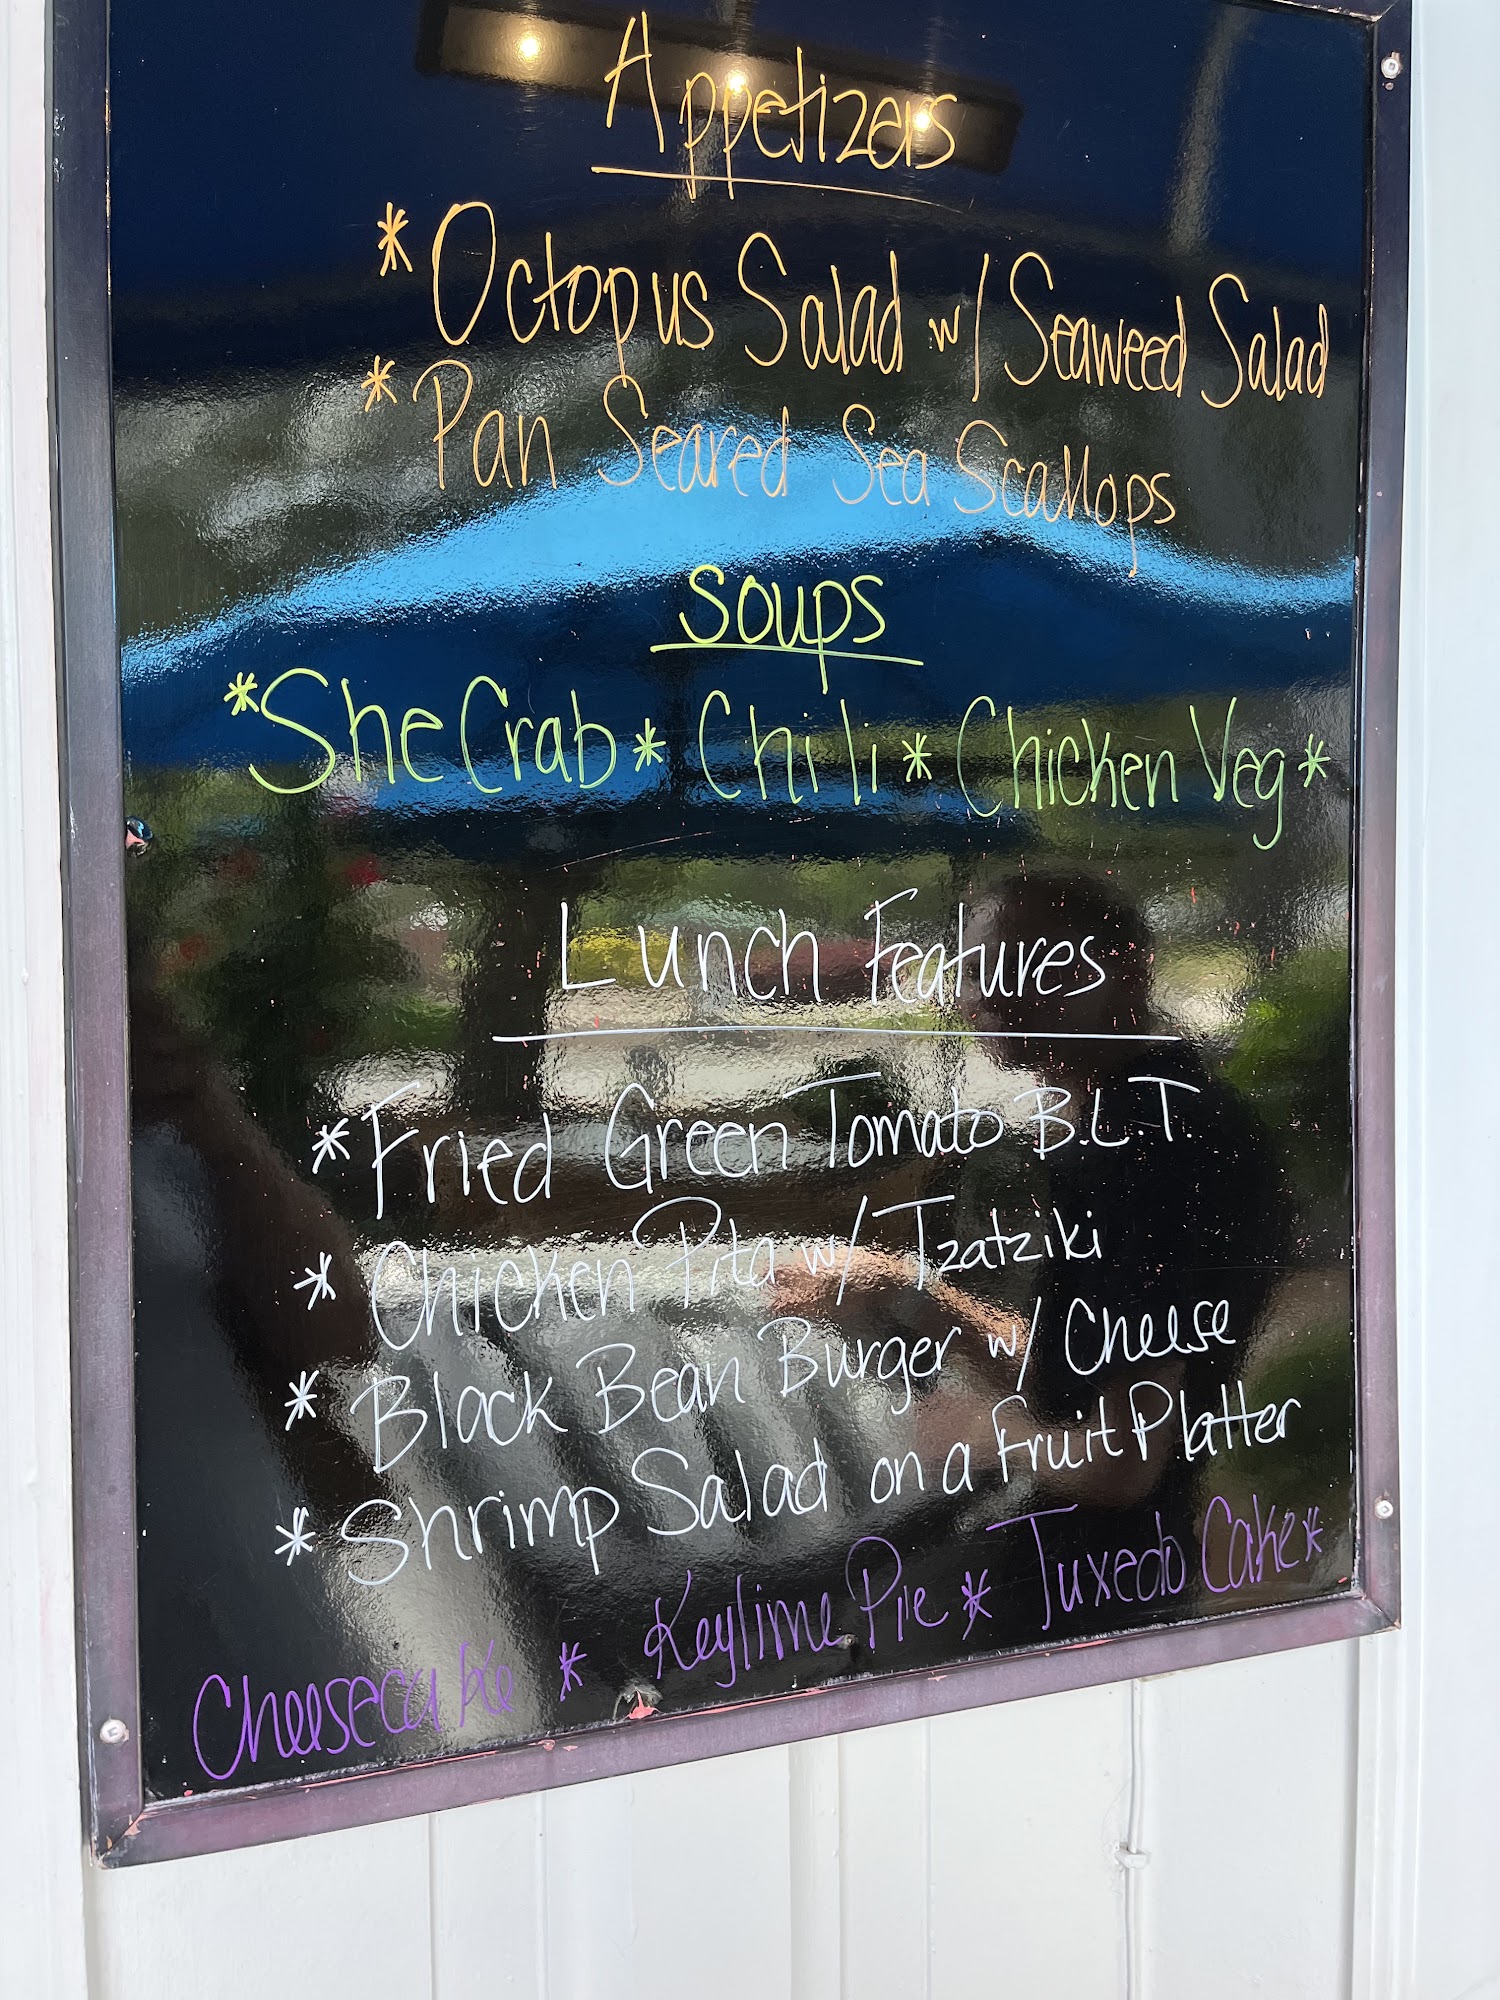 Appetizers
* Octopus Salad w/ Seaweed Salad
* Pan Seared Sea Scallops
Soups
* She Crab * Chili * Chicken Veg *
Lunch Features
* Fried Green Tomato B.L.T.
* Chicken Pita w/ Tzatziki
* Black Bean Burger w/ Cheese
* Shrimp Salad on a Fruit Platter
Cheesecake * Keylime Pie * Tuxedo Cake *